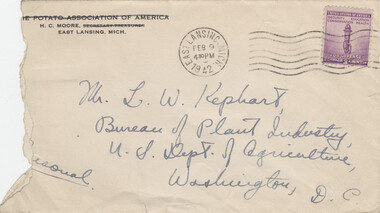 E POTATO ASSOCIATION OF AMERICA
H. C. MOORE, SECRETARY-TREASURER
EAST LANSING, MICH.
EAST LANSING, MICH.
FEB 9
4 PM
1942
Mr. L. W. Kephart,
Bureau of Plant Industry,
U. S. Dept. of Agriculture,
Washington, D. C
rsonal